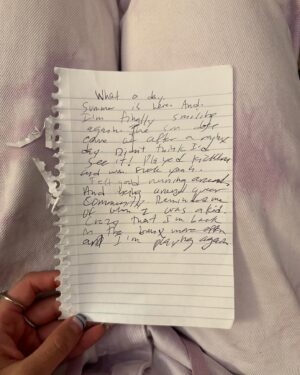 What a day
Summer is here. And
I'm finally
again. The sun
came out after a rainy
day. Didn't think I'd
see it! Played kickball
and was yeah.
Felt good running around
And being around queer
Community. Reminds me
of when I was a kid.
Crazy that I'm back
in the more often
and I'm playing again